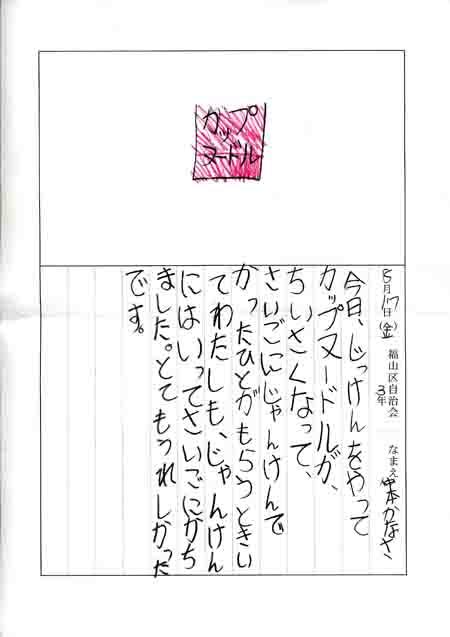 カップ
ヌードル
8月17日(金) 福山区自治会 3年 なまえ
今日、じっけんをやって
カップヌードルが、
ちいさくなって、
さいごにじゃんけんで
かったひとがもらうときい
てわたしも、じゃんけん
にはいってさいごにかち
ました。とてもうれしかった
です。